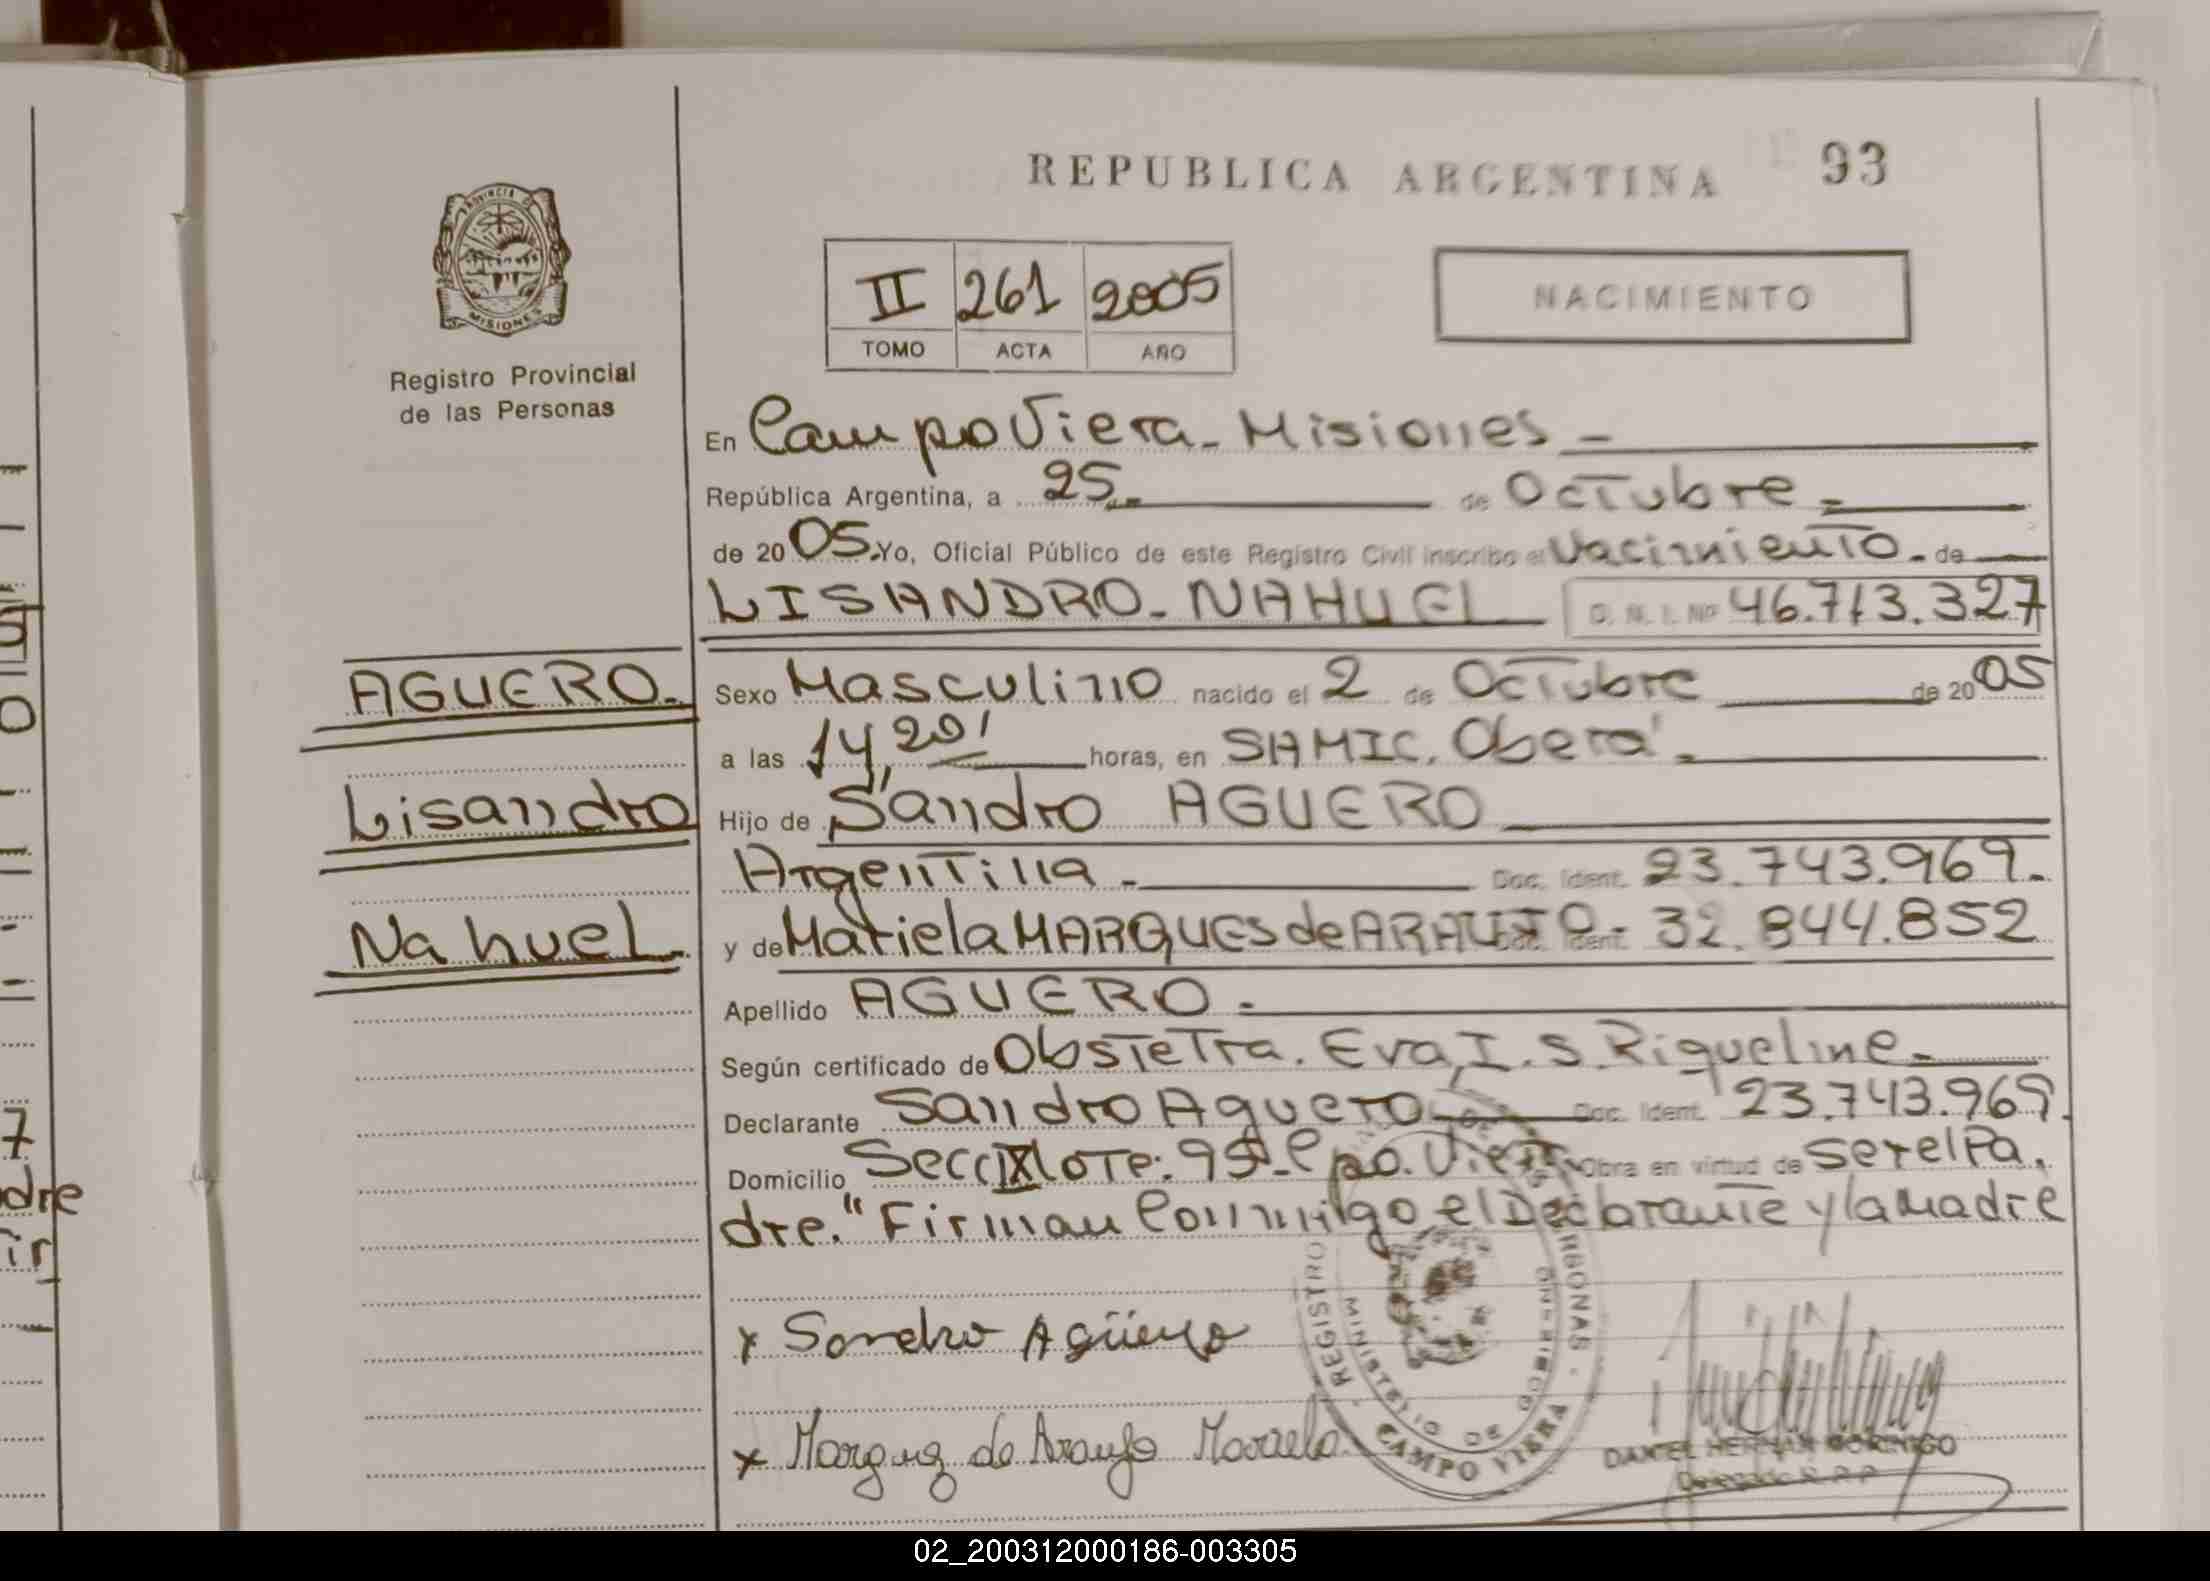 REPUBLICA ARGENTINA 93
PROVINCIA DE
MISIONES
Registro Provincial
de las Personas
II 261 2005
TOMO ACTA AÑO
NACIMIENTO
En Campo Viera - Misiones -
República Argentina, a 25 - de Octubre -
de 2005. Yo, Oficial Público de este Registro Civil inscribo el Nacimiento - de
LISANDRO - NAHUEL D. N. I. Nº 46.713.327
AGUERO.
Sexo Masculino nacido el 2 de Octubre de 2005
a las 14,20' horas, en SAMIC. Oberá -
Lisandro
Hijo de Sandro AGUERO
Argentina - Doc. Ident. 23.743.969.-
Nahuel.
y de Mariela MARQUES de ARAUJO - Doc. Ident. 32.844.852
Apellido AGUERO -
Según certificado de Obstetra. Eva, I. S. Riqueline -
Declarante Sandro Aguero - Doc. Ident. 23.743.969.
Domicilio Secc IX lote: 95 - Cpo. Viera Obra en virtud de ser el Pa,
dre. "Firman Conmigo el Declarante y la Madre
x Sandro Agüero
x de Araujo
REGISTRO
MINISTERIO DE
CAMPO VIERA
DANIEL HERNAN
Delegado R. P. P.
7
dre
ir
02_200312000186-003305